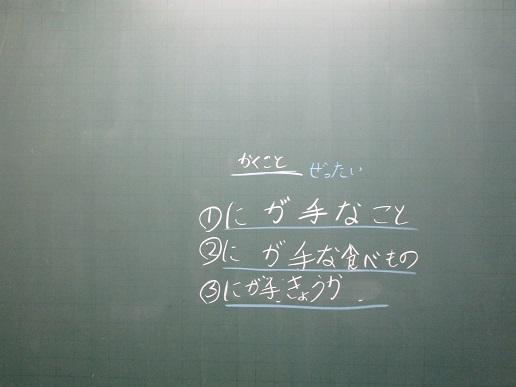 かくこと ぜったい
①にが手なこと
②にが手な食べもの
③にが手きょうか